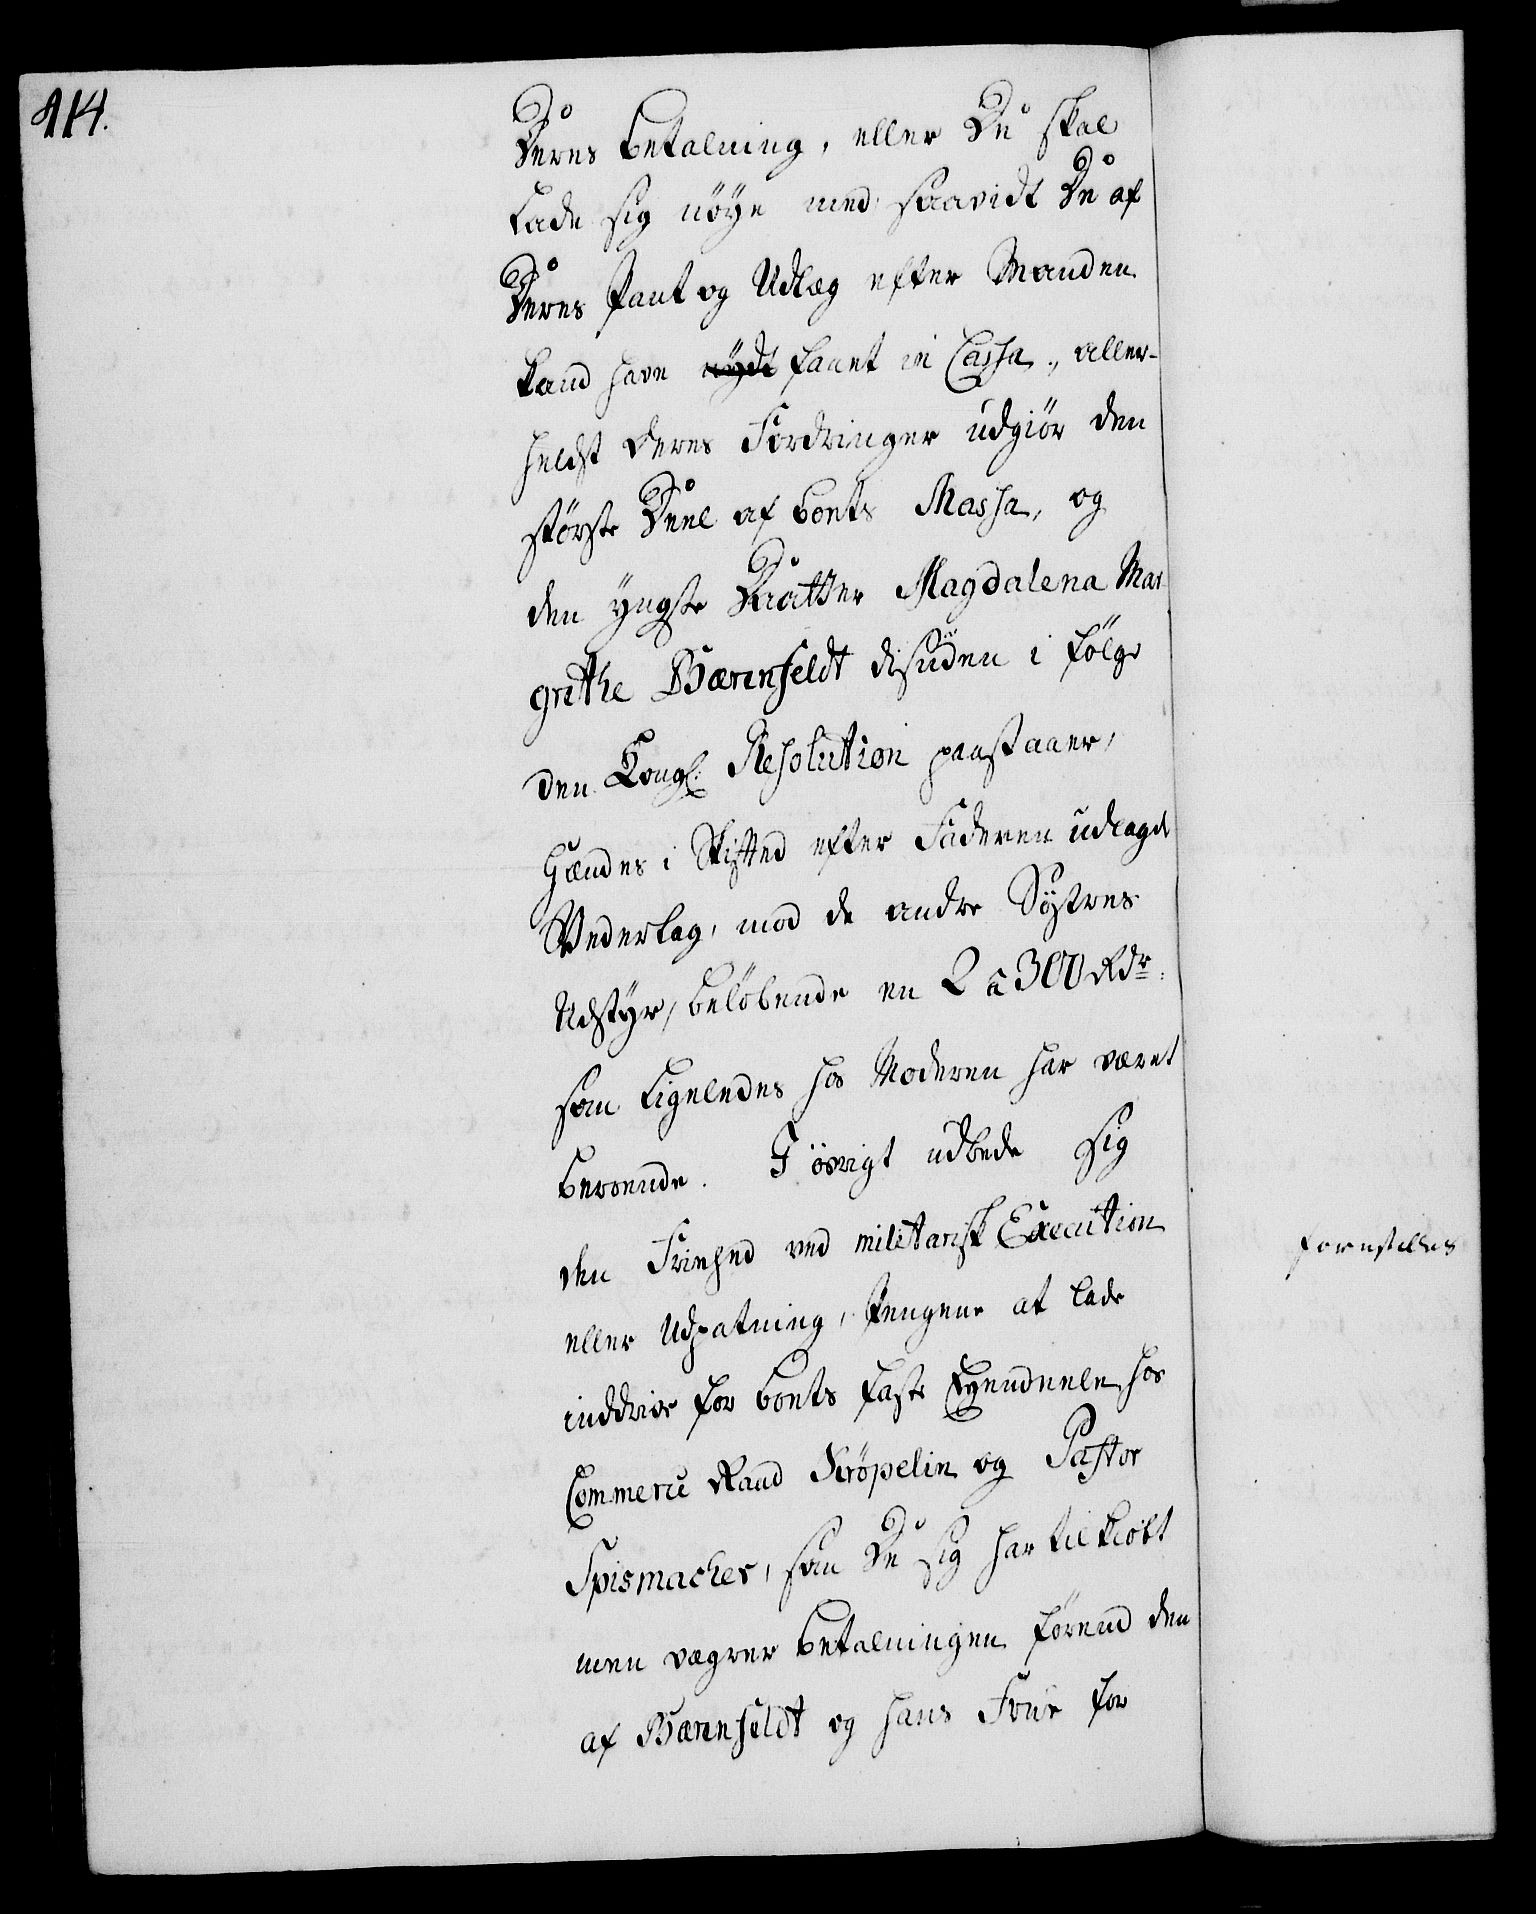 414.
Deres betalning, eller De skal
lade sig nöye med saavidt De af
Deres Pant og Udlæg efter Manden
kand have nydt faaet in Cassa, aller-
helst deres Fordringer udgiör den
störste Deel af boets Massa, og
den yngste Daatter Magdalena Mar-
grethe Bærenfeldt desuden i fölge
den Kongl: Resolution paastaaer,
Hændes i Skifted efter Faderen udlagde
Vederlag, mod de andre Söstres
Udstyr, belöbende en 2 à 300 Rdr:
som ligeledes hos Moderen har været
beroende. I övrigt udbede sig
den Friehed ved militarisk Execution
eller Udpatning, Pengene at lade
inddrive for boets faste Eyendeele hos
Commerce Raad Kröpelin og Pastor
Spismacher, som De sig har tilkiöbt
men vægrer betalningen förend den
af Bærenfeldt og hans Frue for
forestilles